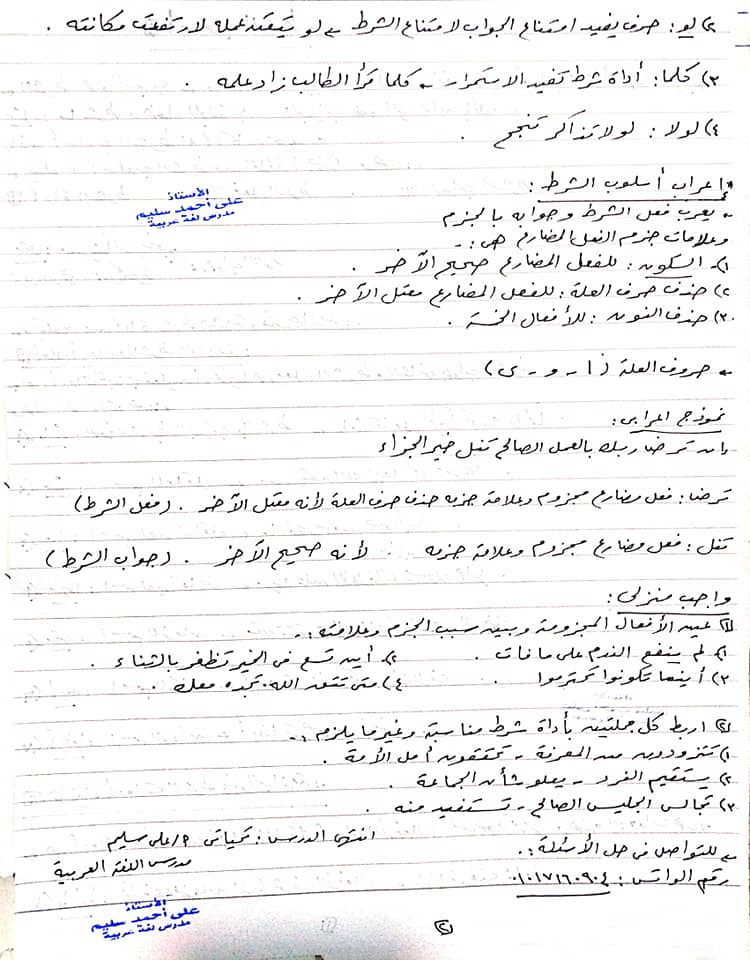 ٢) لو: حرف يفيد امتناع الجواب لامتناع الشرط ← لو يتقن عمله لارتفعت مكانته .
٣) كلما: أداة شرط تفيد الاستمرار ← كلما قرأ الطالب زاد علمه .
٤) لولا: لولا تذاكر تنجح .
* إعراب أسلوب الشرط:
الأستاذ
على أحمد سليم
مدرس لغة عربية
← يعرب فعل الشرط وجوابه بالجزم
وعلامات جزم الفعل المضارع هى:.
١) السكون: للفعل المضارع صحيح الآخر .
٢) حذف حرف العلة: للفعل المضارع معتل الآخر .
٣) حذف النون: للأفعال الخمسة .
← حروف العلة (ا - و - ى)
نموذج إعرابى:
إن ترضا ربك بالعمل الصالح تنل خير الجزاء
ترضا: فعل مضارع مجزوم وعلامة جزمه حذف حرف العلة لأنه معتل الآخر . (فعل الشرط)
تنل: فعل مضارع مجزوم وعلامة جزمه . . لأنه صحيح الآخر . (جواب الشرط)
واجب منزلى:
١) عين الأفعال المجزومة وبين سبب الجزم وعلامته:.
١) لم ينفع الندم على ما فات . ٢) أين تسع فى الخير تظفر بالثناء .
٣) أينما تكونوا تحترموا . ٤) متى تتق الله تجده معك .
٢) اربط كل جملتين بأداة شرط مناسبة وغير ما يلزم:.
١) تتزودون من المعرفة - تحققون أمل الأمة .
٢) يستقيم الفرد - يعلو شأن الجماعة .
٣) تجالس الجليس الصالح - تستفيد منه .
انتهى الدرس: تحياتى أ/على سليم
مدرس اللغة العربية
← للتواصل فى حل الأسئلة:.
رقم الواتس: ٠١٠١٧١٦٠٩٠٤
الأستاذ
على أحمد سليم
مدرس لغة عربية
٢